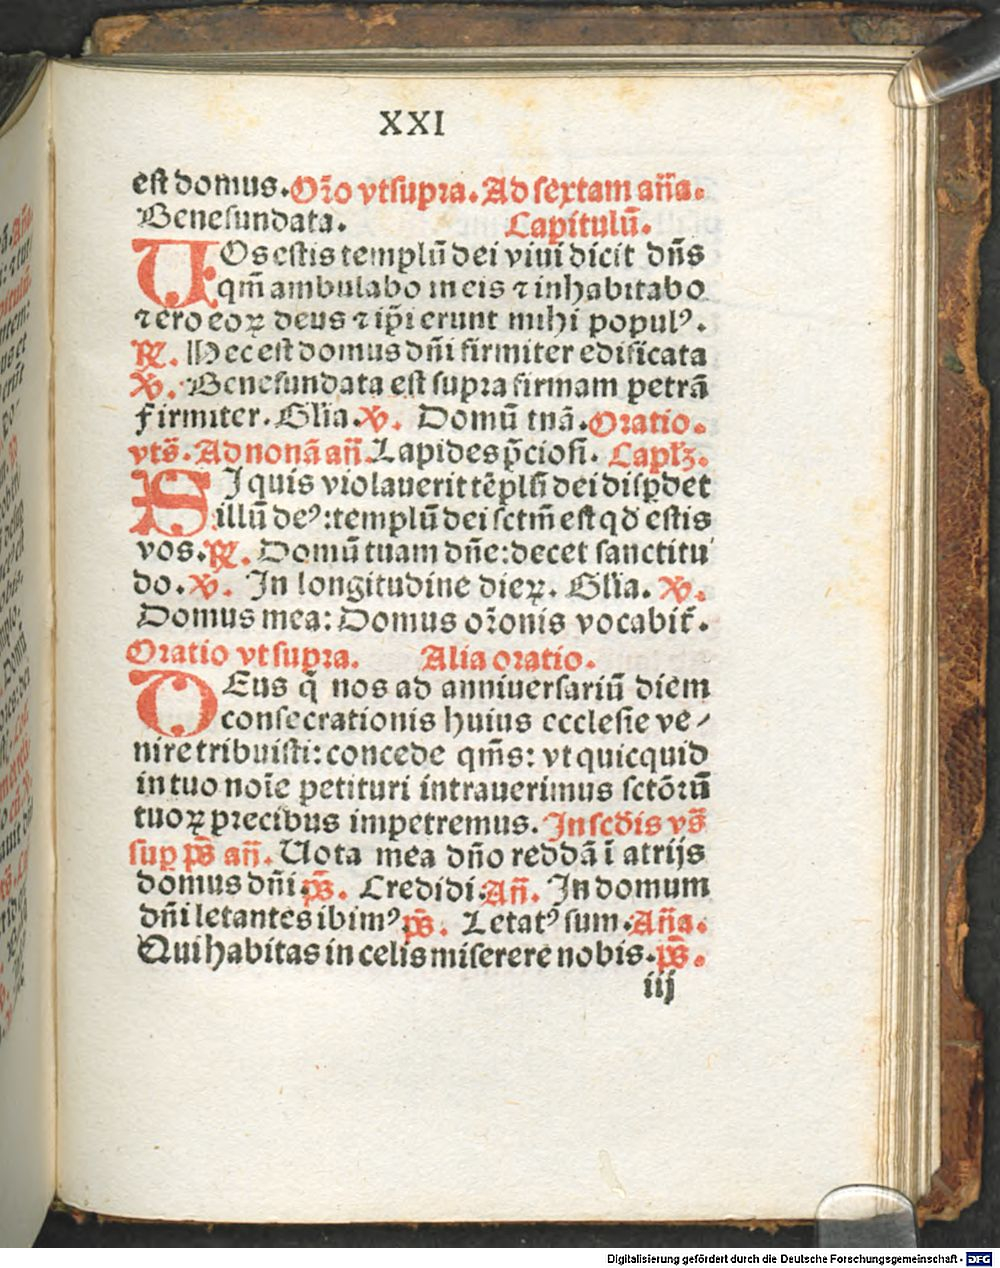 XXI
est domus. Or̃o vt supra. Ad sextam añã.
Bene fundata. Capitulũ.
UOs estis templũ dei viui dicit dñs
qm̃ ambulabo in eis ⁊ inhabitabo
⁊ ero eoꝝ deus ⁊ ip̃i erunt mihi populꝰ.
℟. Hec est domus dñi firmiter edificata
℣. Bene fundata est supra firmam petrã
firmiter. Gl̃ia. ℣. Domũ tuã. Oratio.
vts̃. Ad nonã añ. Lapides p̃ciosi. Capl̃ꝫ.
SI quis violauerit tẽplũ dei disꝑdet
illũ deꝰ: templũ dei sctm̃ est qđ estis
vos. ℟. Domũ tuam dñe: decet sanctitu
do. ℣. In longitudine dieꝝ. Gl̃ia. ℣.
Domus mea: Domus or̃onis vocabit̃.
Oratio vt supra. Alia oratio.
DEus q̃ nos ad anniuersariũ diem
consecrationis huius ecclesie ve⸗
nire tribuisti: concede qm̃s: vt quicquid
in tuo noĩe petituri intrauerimus sctõrũ
tuoꝝ precibus impetremus. In scđis vs̃
suꝑ ps̃ añ. Uota mea dño reddã ĩ atrijs
domus dñi. ps̃. Credidi. Añ. In domum
dñi letantes ibimꝰ ps̃. Letatꝰ sum. Aña.
Qui habitas in celis miserere nobis. ps̃.
iij
Digitalisierung gefördert durch die Deutsche Forschungsgemeinschaft - DFG